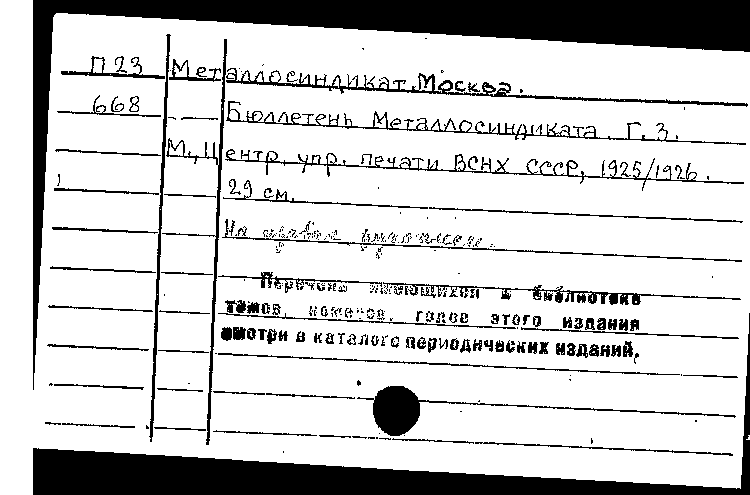 П 23 Металлосиндикат. Москва.
668 Бюллетень Металлосиндиката. Г. 3.
М., Центр. упр. печати ВСНХ СССР, 1925/1926.
29 см.
На правах рукописи.
Перечень имеющихся в библиотеке
томов, номеров, годов этого издания
смотри в каталоге периодических изданий.